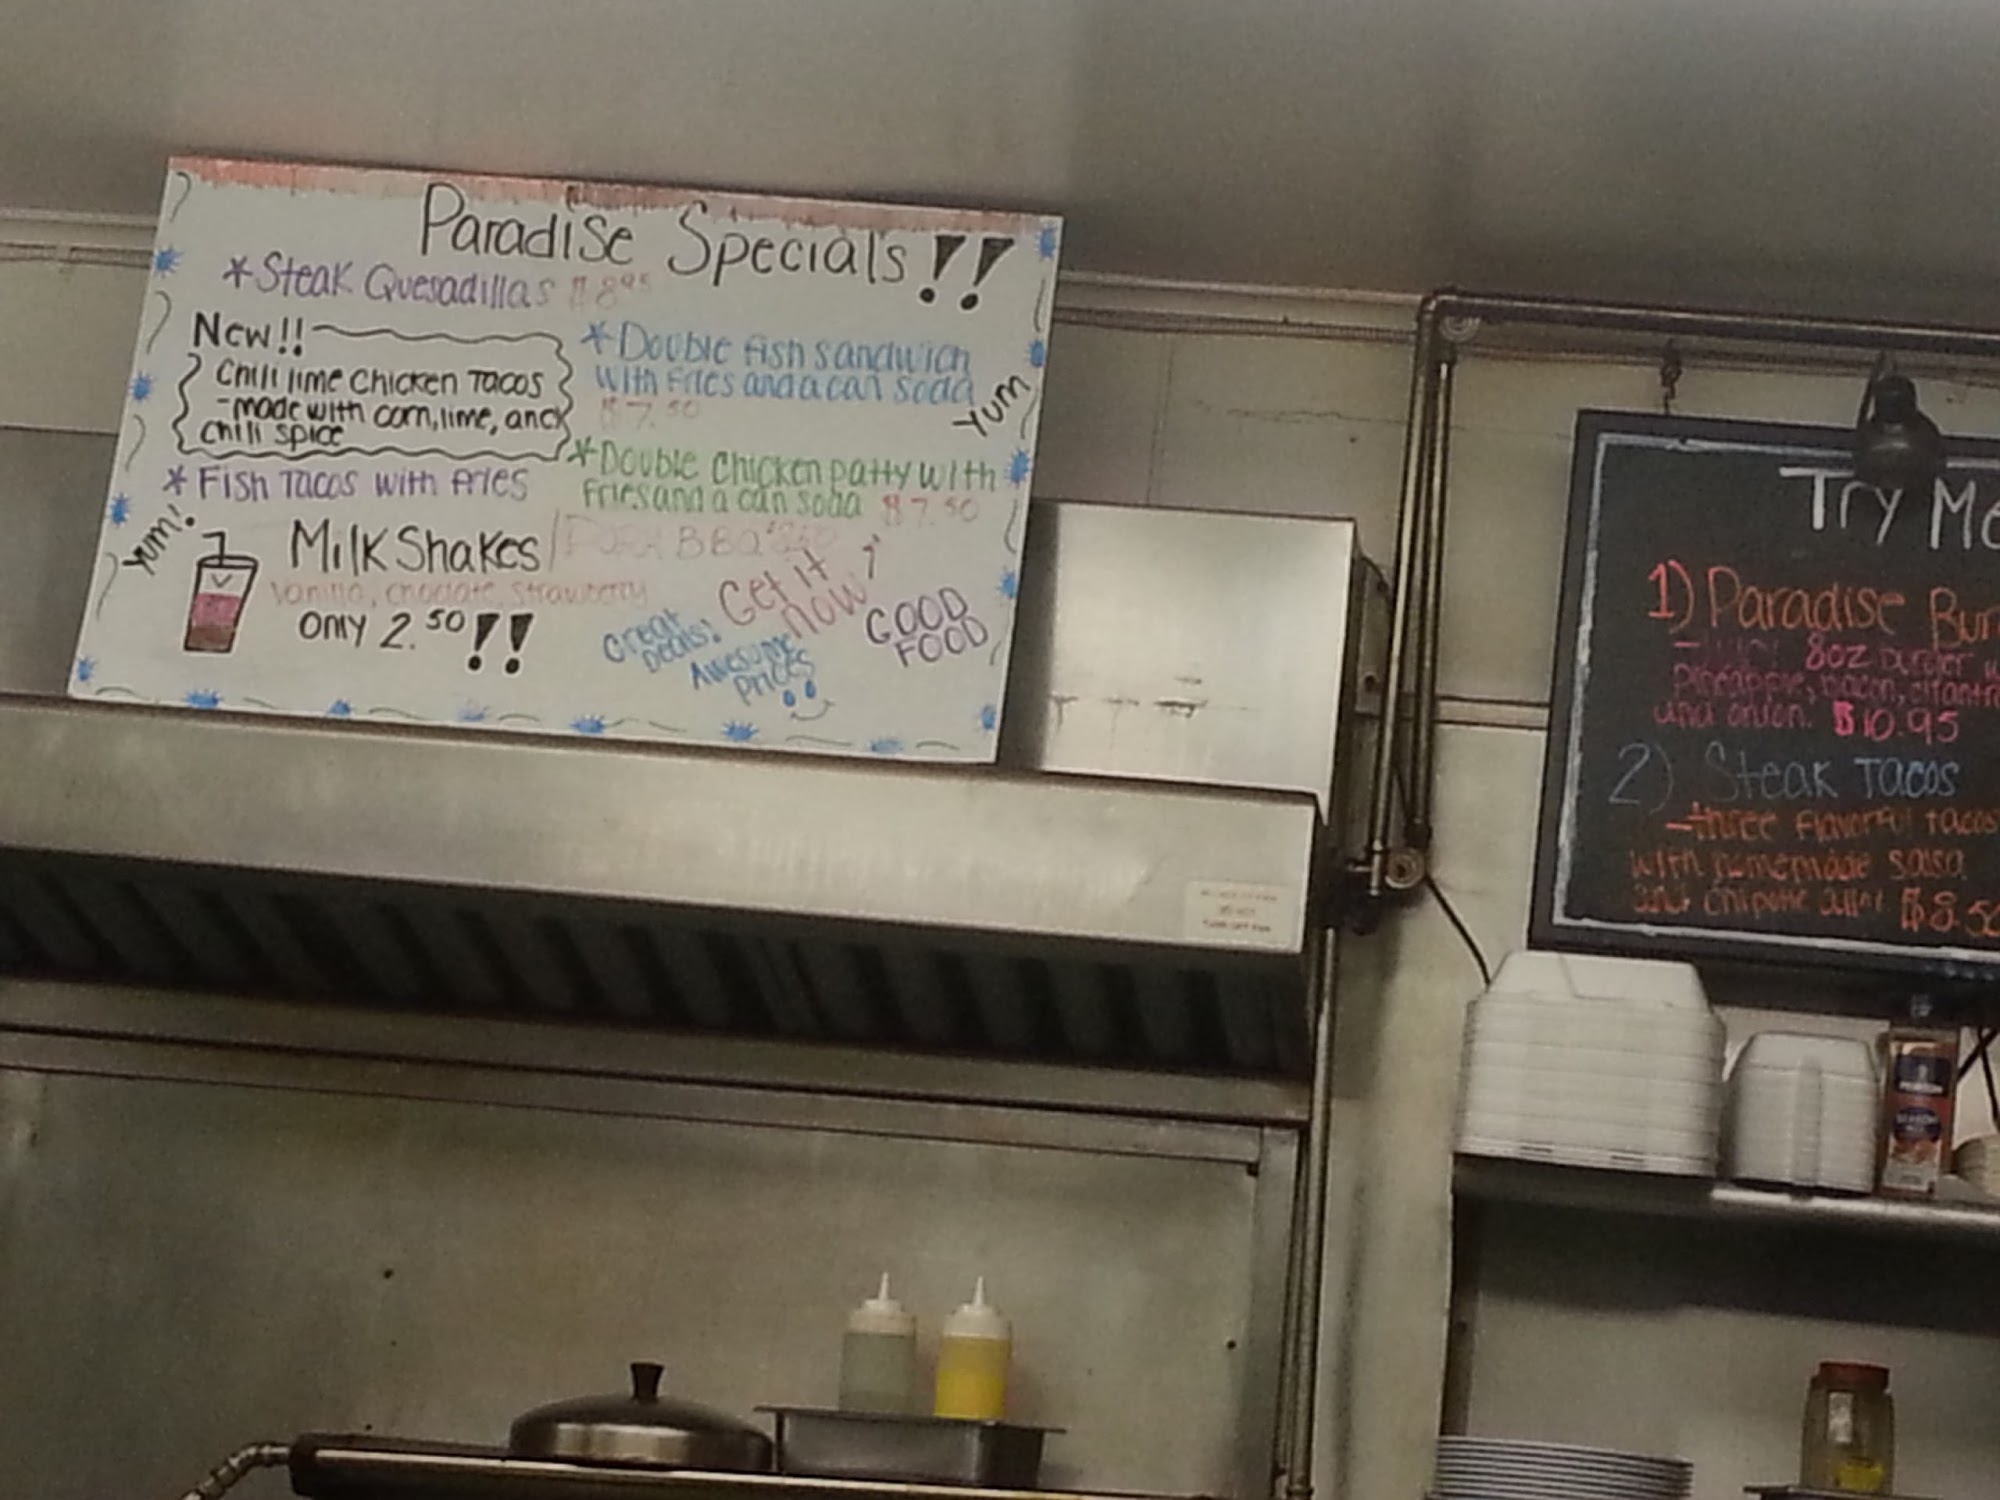 Paradise Specials!!
*Steak Quesadillas $8.95
New!!
Chili lime Chicken Tacos
-made with corn, lime, and
chili spice
*Fish Tacos with fries
*Double fish sandwich
with fries and a can soda
$7.50
*Double Chicken patty with
fries and a can soda $7.50
Yum
Yum!
MilkShakes
BBQ
Vanilla, choclate, strawberry
only 2.50!!
Get it
now
Great
Deals!
Awesome
Prices
GOOD
FOOD
Try Me
1) Paradise Bur
8oz burger
pineapple, bacon, cilantr
and onion. $10.95
2) Steak Tacos
-three flavorful tacos
with homemade salsa
and chipotle $8.50